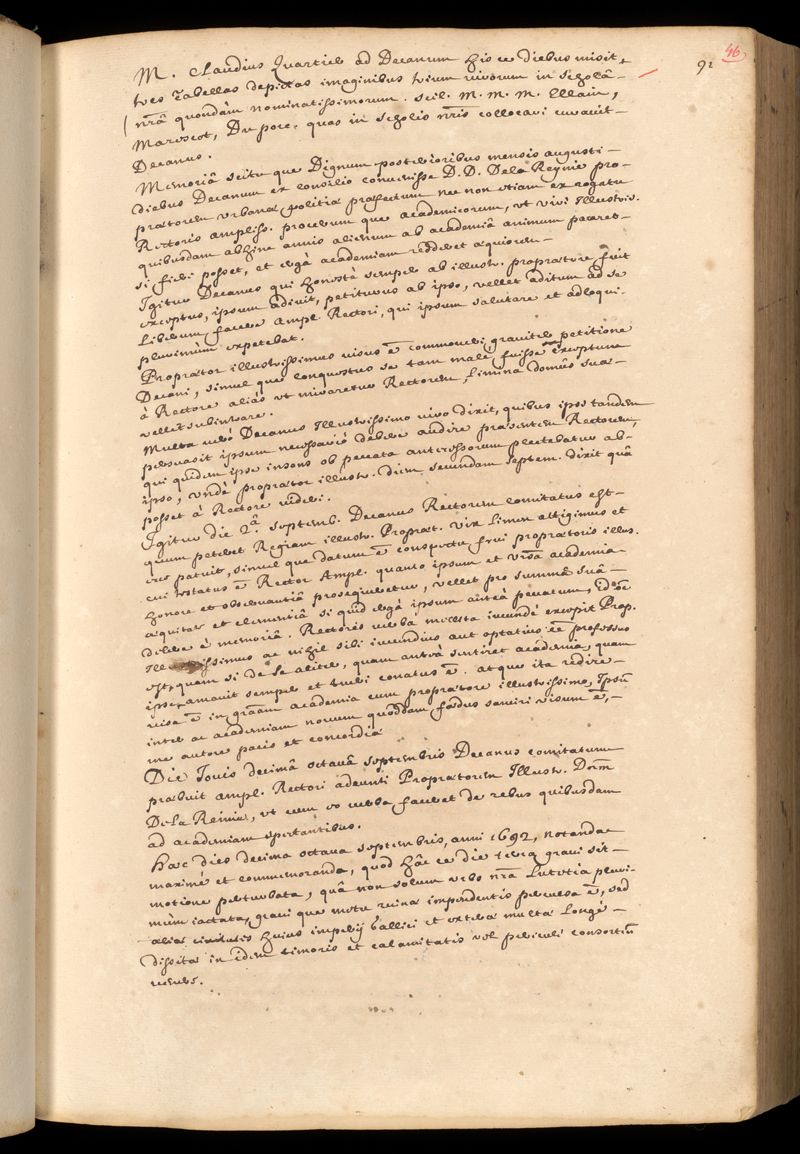 46
91
M. Claudius Quartier ad Decanum his ce diebus misit
tres tabellas depictas imaginibus trium virorum in scholâ
nrâ quondàm nominatissimorum. scil. M. M. M. Illain,
Marescot, Du pore, quas in scholis nris collocari curavit
Decanus.
Memoriâ scitu que Dignum posterioribus mensis augusti
diebus Decanum ex consilio convenisse D. D. De la Reynie pro-
prætorem urbanæ politiæ præfectum nec non etiam ex rogatu
Rectoris ampliss. procerum que academicorum, ut viri Illustriss.
quibusdam abhinc annis alienum ab academiâ animum pacaret
si fieri posset, et ergà academiam redderet æquiorem
Igitur Decanus qui honestè semper ab illustr. proprætore fuit
exceptus, ipsum adivit, petiturus ab ipso, vellet aditum ad se
liberum facere ampl. Rectori, qui ipsum salutare et adloqui
plurimum expetebat.
Proprætor illustrissimus visus ē commoveri graviter petitione
Decani, simul que conquestus se tam malè fuisse exceptum
à Rectore aliàs ut miraretur Rectorem, limina domûs suæ
vellet subintrare.
Multa verò Decanus Illustrissimo viro dixit, quibus ipsi tandem
persuasit ipsum necessariò debere audire præsentem Rectorem,
qui quidem ipse insons ob peccata antecessorum plectebatur ab
ipso, undè proprætor illustr. diem secundam septem. dixit quâ
posset à Rectore videri.
Igitur die 2.â septemb. Decanus Rectorem comitatus est
quum peteret Regiam illustr. Propræt. vix limen attigimus et
res patuit, simul que datum ē conspectu frui proprætoris illus.
cui testatus ē Rector Ampl. quanto ipsum et universa academia
honore et observantiâ prosequeretur, vellet pro summâ suâ
æquitate et clementiâ si quid ergà ipsum anteà peccatum, id oē
delere è memoriâ. Rectoris verba modesta iucundè excepit Prop.
Illustrissimus ac nihil sibi iucundius aut optatius eē professus
est, quam si de se aliter, quam anteà sentiret academia, quam
ipse amavit semper et tueri conatus ē. atque ita redire
visa ē in grāam academia cum proprætore illustrissimo, Ipsū
inter ac academiam novum quoddam fœdus saniri visum ē,
me autore pacis et concordiæ
Die Jovis decimâ octavâ septembris Decanus comitatum
præbuit ampl. Rectori adeunti Proprætorem Illustr. Dom̄
De la Reinie, ut cum eo verba faceret de rebus quibusdam
ad academiam spectantibus.
Hæc dies decima octava septembris, anni 1692, notanda
maximè et commemoranda, quod hâc ce die terra gravi sit
motione perturbata, quâ non solum urbs nrâ Lutetia pluri-
mùm iactata, gravi que motu ruinæ impendentis perculsa ē, sed
aliæ civitatis huius imperij Gallici et extera multa longè
dissita in idem timoris et calamitatis vel periculi consortiū
venere.